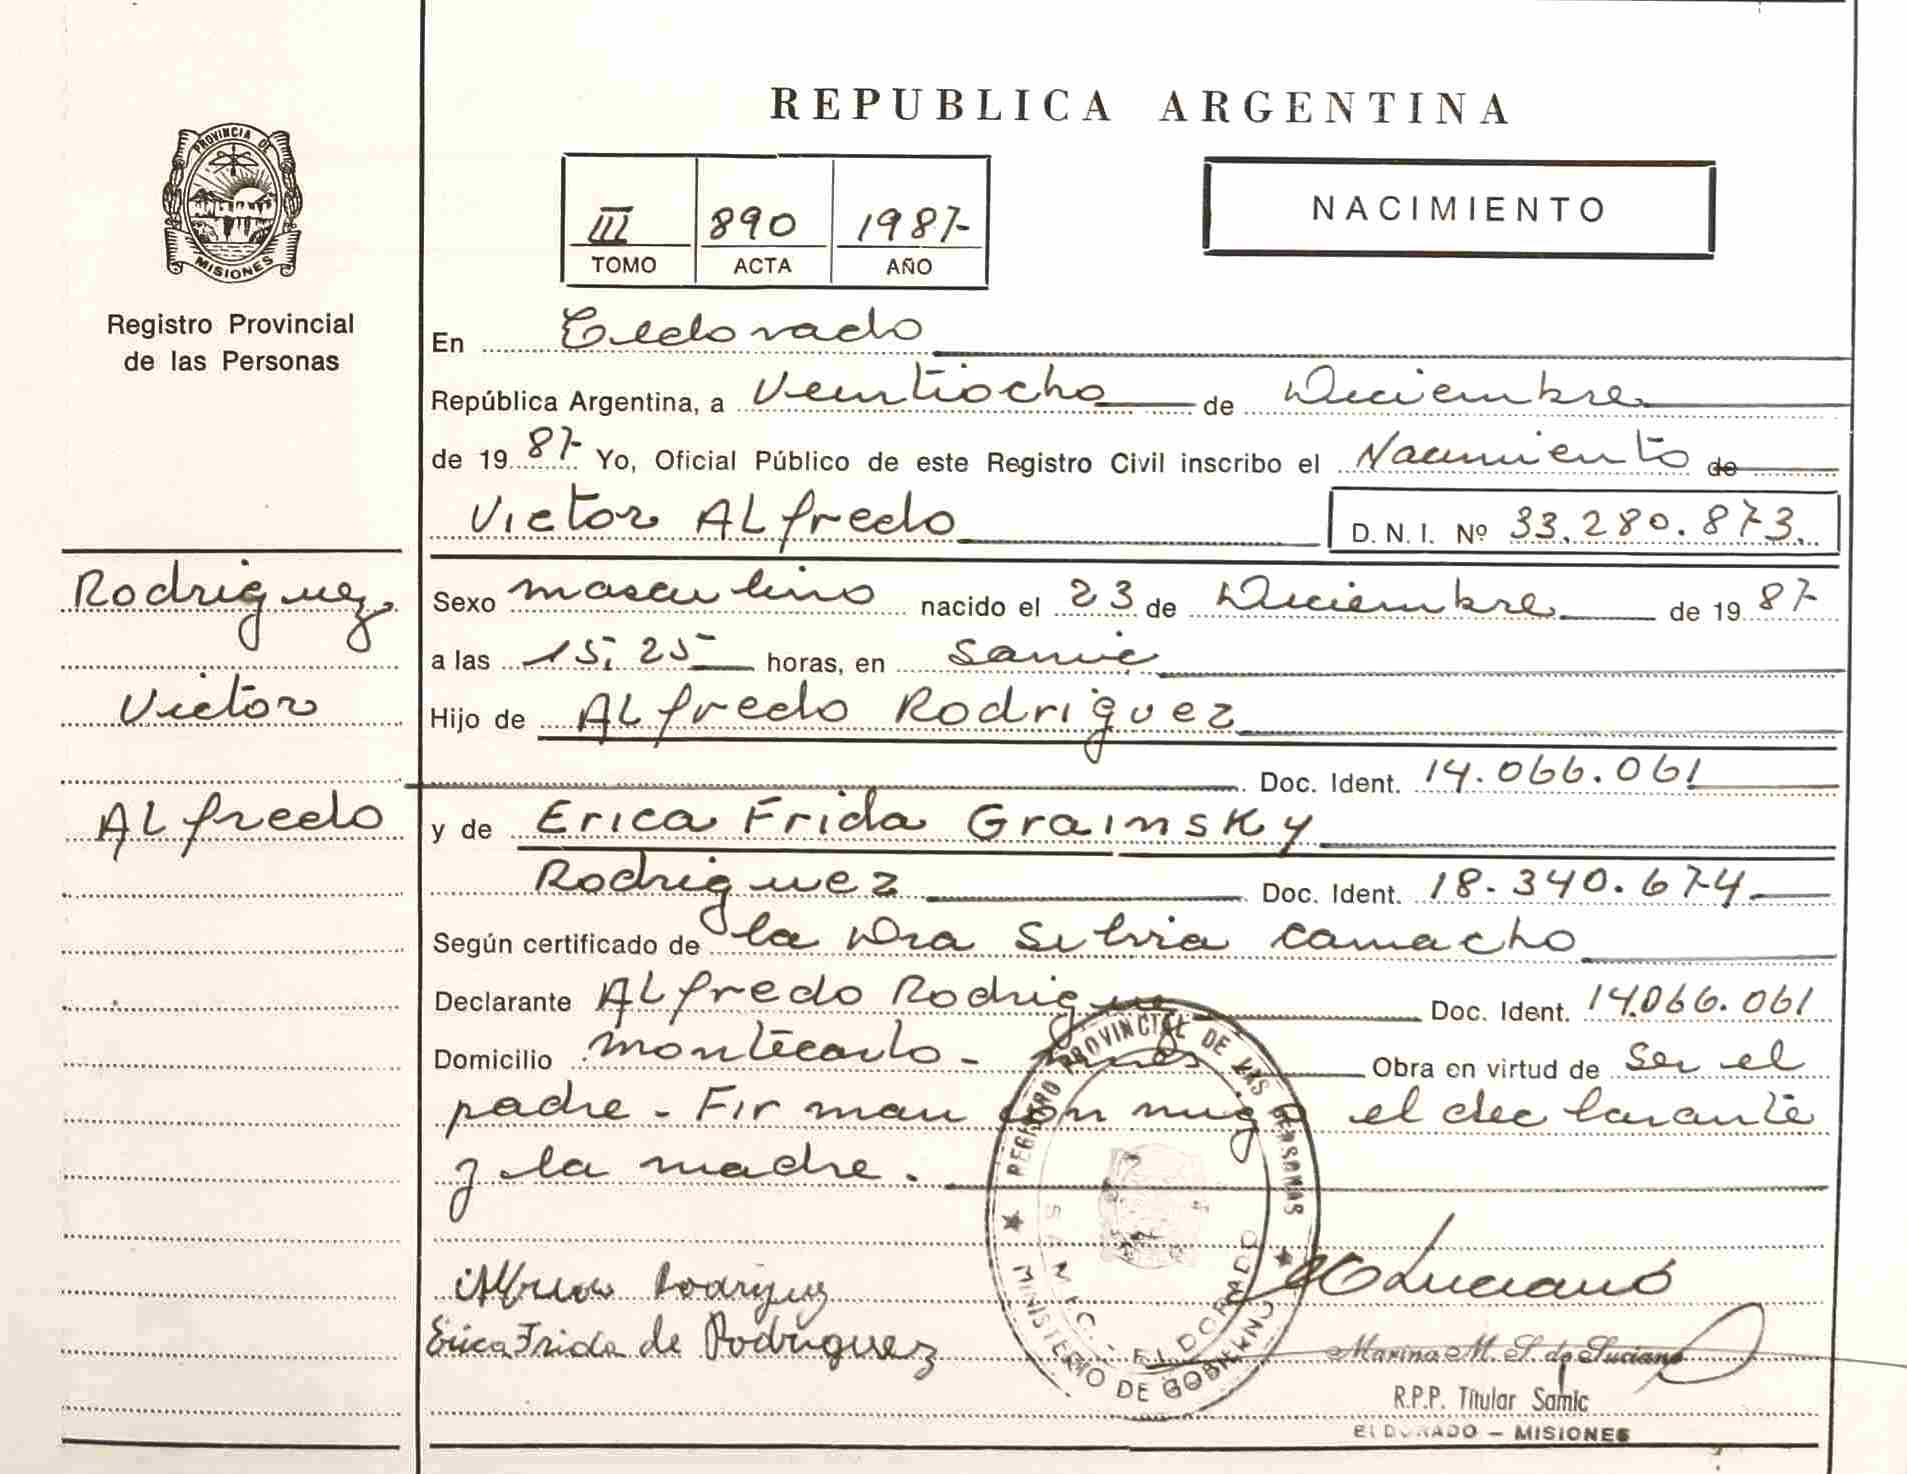 REPUBLICA ARGENTINA
PROVINCIA DE
MISIONES
Registro Provincial
de las Personas
III 890 1987
TOMO ACTA AÑO
NACIMIENTO
En Eldorado
República Argentina, a Veintiocho de Diciembre
de 1987 Yo, Oficial Público de este Registro Civil inscribo el Nacimiento de
Victor ALfredo D. N. I. Nº 33.280.873.
Rodriguez
Victor
ALfredo
Sexo masculino nacido el 23 de Diciembre de 1987
a las 15,25 horas, en Samic
Hijo de ALfredo Rodriguez
Doc. Ident. 14.066.061
y de Erica Frida Grainsky
Rodriguez Doc. Ident. 18.340.674
Según certificado de la Dra Silvia Camacho
Declarante ALfredo Rodriguez Doc. Ident. 14.066.061
Domicilio Montecarlo - Mnes Obra en virtud de Ser el
padre - Firman con migo el declarante
y la madre.
REGISTRO PROVINCIAL DE LAS PERSONAS
SAMIC - ELDORADO
MINISTERIO DE GOBIERNO
Alfredo Rodriguez
Erica Frida de Rodriguez
Luciano
Marina M. S. de Luciano
R.P.P. Titular Samic
ELDORADO - MISIONES